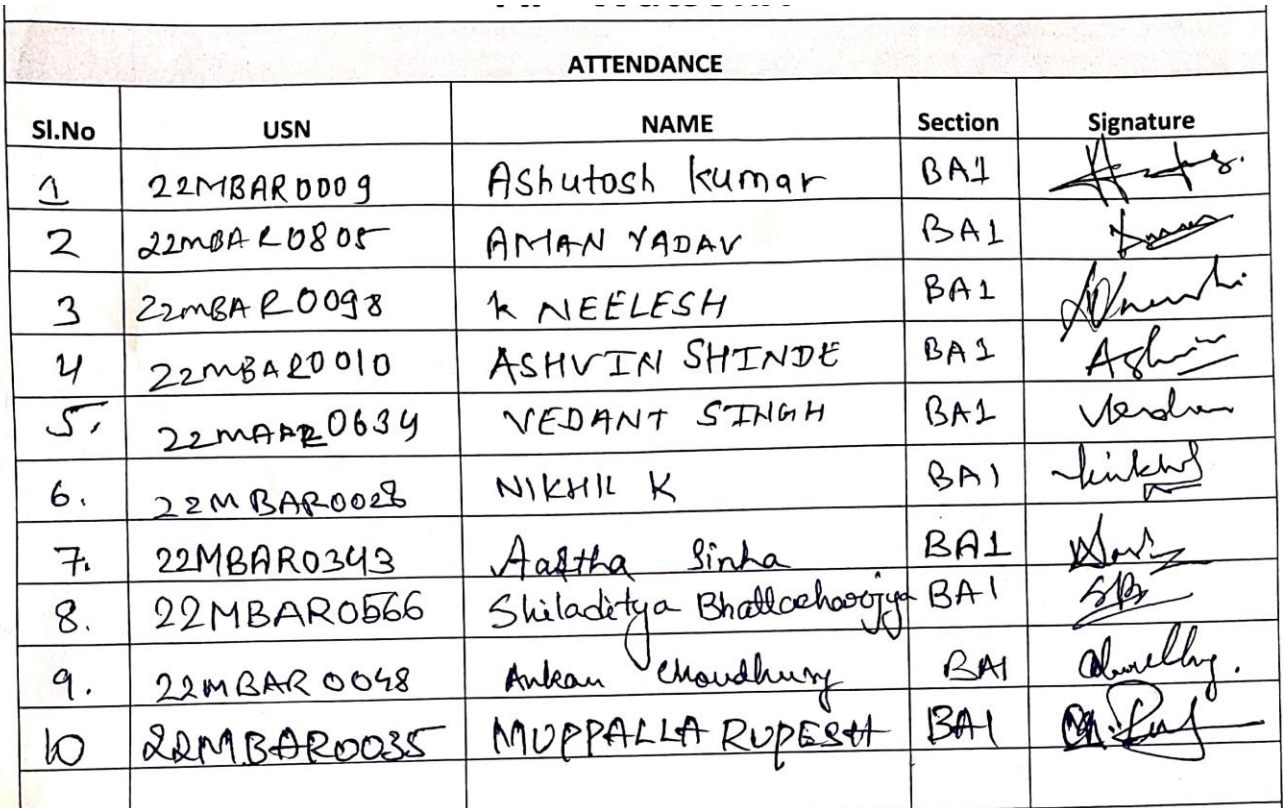 ATTENDANCE
Sl.No USN NAME Section Signature
1 22MBAR0009 Ashutosh kumar BA1
2 22MBAR0805 AMAN YADAV BA1
3 22MBAR0098 k NEELESH BA1
4 22MBAR0010 ASHVIN SHINDE BA1
5. 0634 VEDANT SINGH BA1
6. 22MBAR0028 NIKHIL K BA1
7. 22MBAR0343 Aastha Sinha BA1
8. 22MBAR0566 Shiladitya Bhattacharjya BA1
9. 22MBAR0048 Ankan Choudhury BA1
10 22MBAR0035 MUPPALLA RUPESH BA1